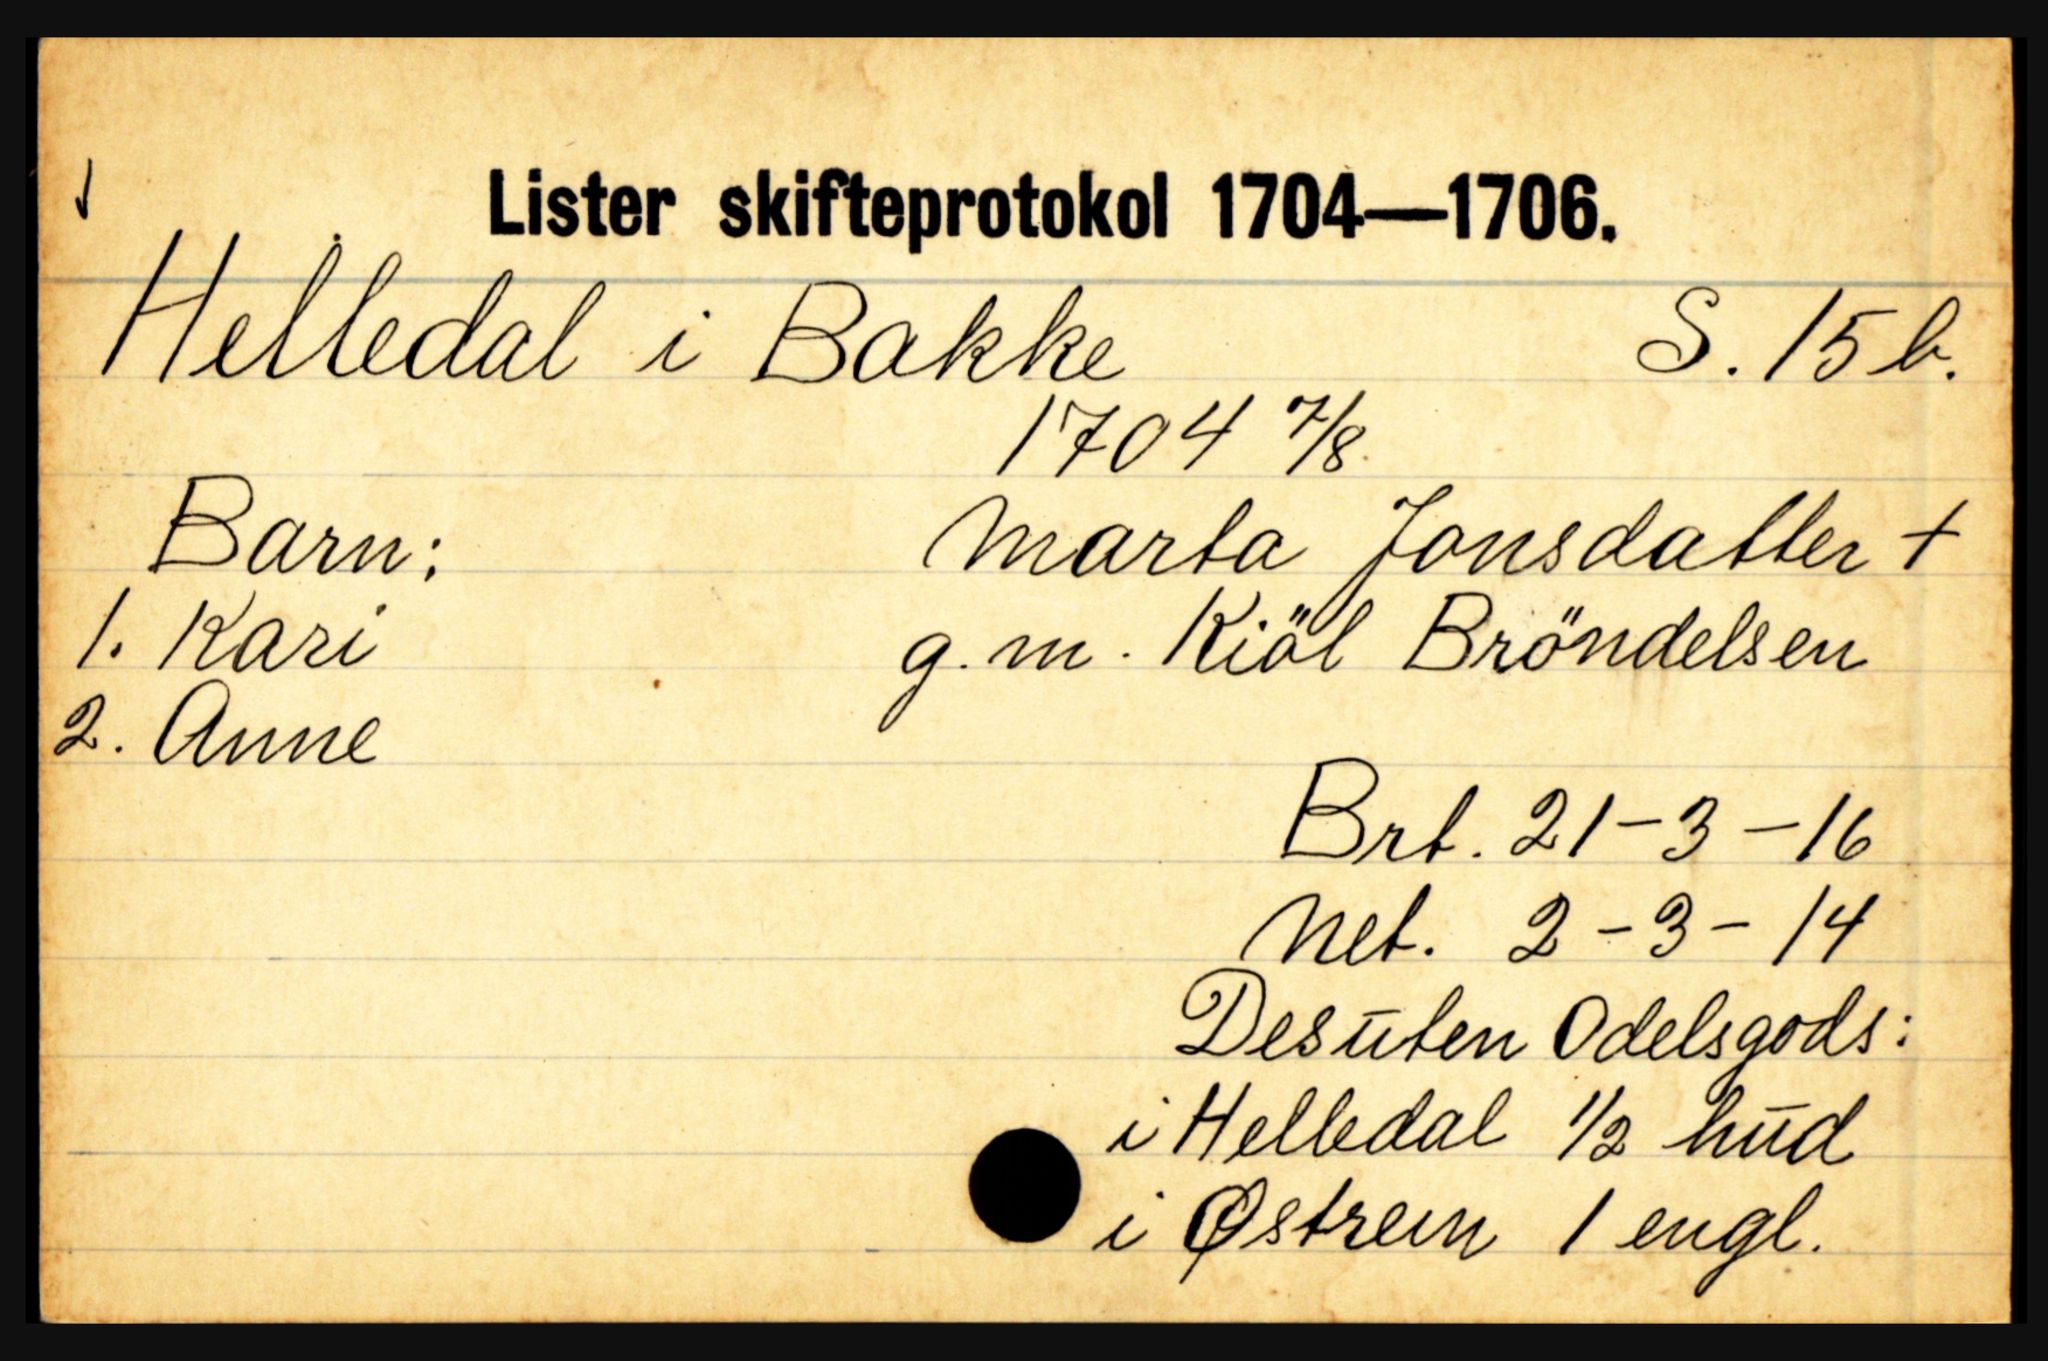 Lister skifteprotokol 1704—1706.
Helledal i Bakke S. 15 b.
1704 7/8
Barn:
1. Kari
2. Anne
Marta Jonsdatter +
g. m. Kiöl Bröndelsen
Brt. 21-3-16
Net. 2-3-14
Desuten Odelsgods:
i Helledal 1/2 hud
i Østrem 1 engl.